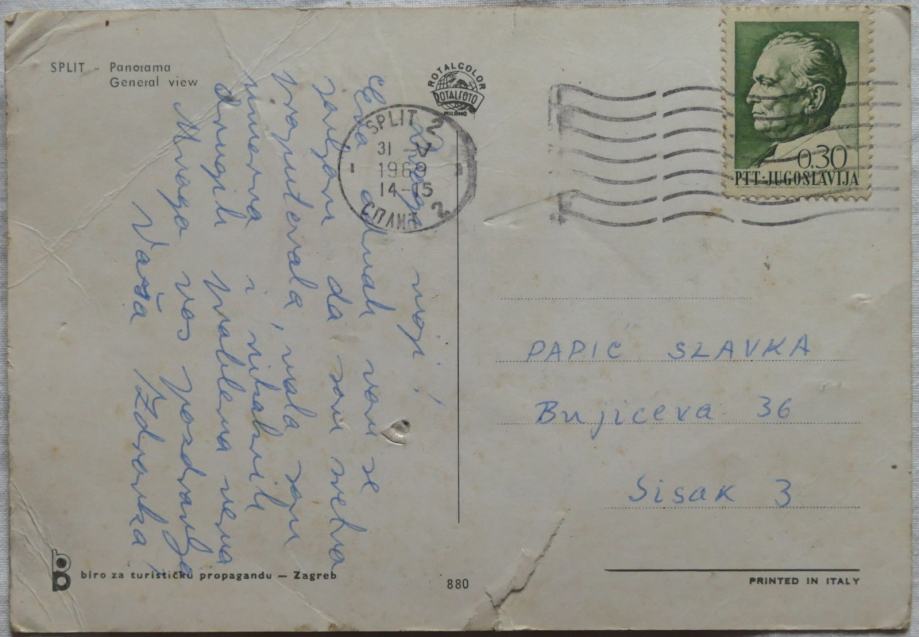 SPLIT - Panorama
General view
ROTALCOLOR
ROTALFOTO
MILANO
SPLIT 2
31
1969
14-15
СПЛИТ 2
0.30
PTT·JUGOSLAVIJA
Dragi moji!
Evo odmah vam se
javljam da sam sretna
doputovala, malo sam
umorna i nikakvih
drugih problema nema
Mnogo vas pozdravlja
Vaša Zdravka
PAPIĆ SLAVKA
Bujiceva 36
Sisak 3
biro za turističku propagandu — Zagreb
880
PRINTED IN ITALY